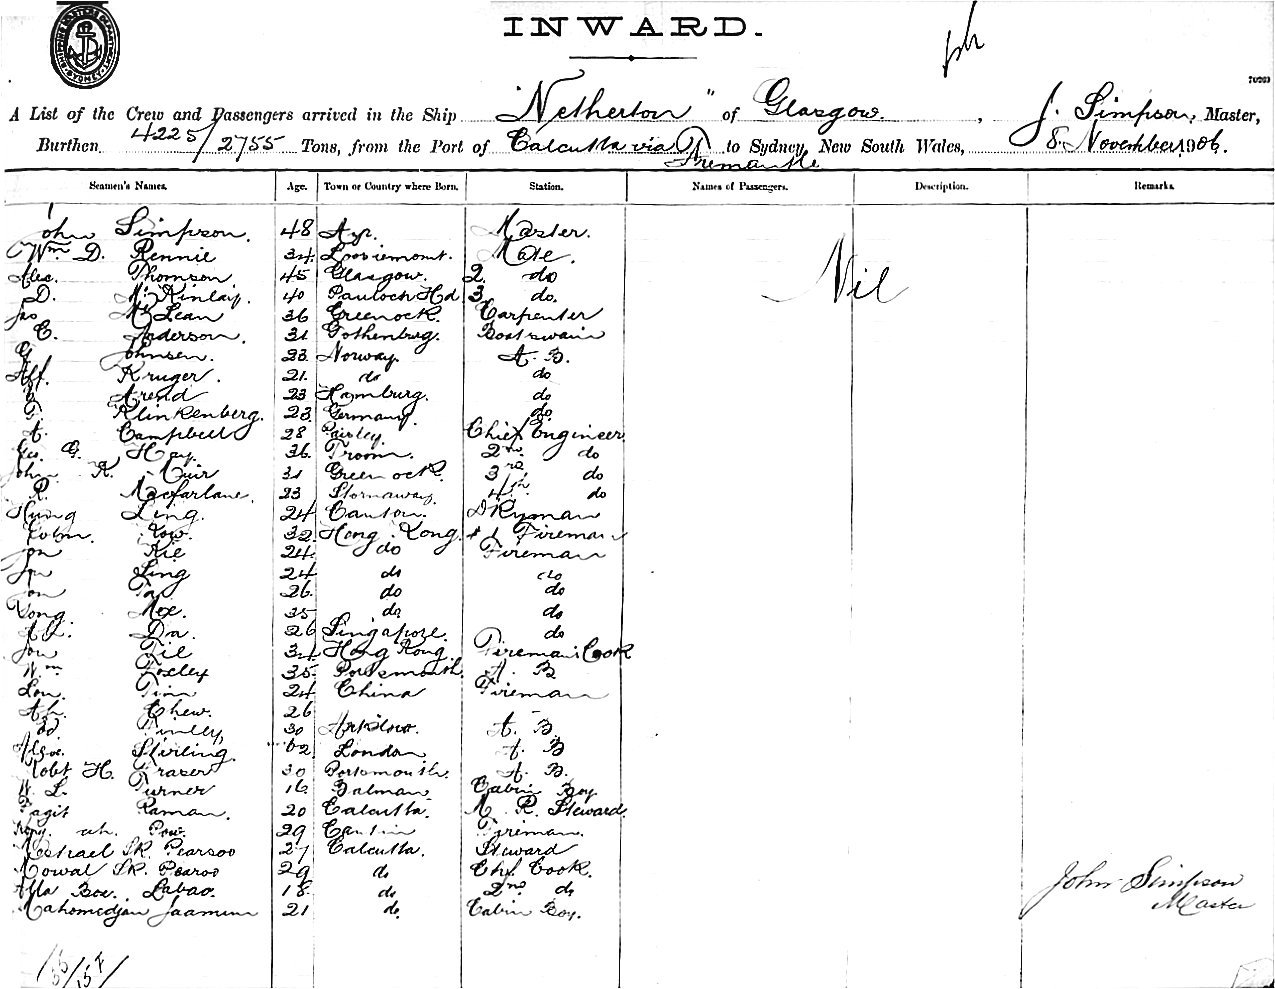 INWARD.
70269
A List of the Crew and Passengers arrived in the Ship "Netherton" of Glasgow, J. Simpson, Master,
Burthen 4225/2755 Tons, from the Port of Calcutta via Fremantle to Sydney, New South Wales, 8 November 1906.
Seamen's Names. Age. Town or Country where Born. Station. Names of Passengers. Description. Remarks.
John Simpson. 48 Ayr. Master.
Wm D. Rennie 34 Lossiemouth. Mate.
Nil
Alex. Thomson 45 Glasgow. 2 do
D. McKinlay. 40 3 do.
Jas McLean 36 Greenock. Carpenter
C. Anderson. 31 Gothenburg. Boatswain
G Johnsen. 23 Norway. A. B.
Alf. Kruger. 21. do do
Arend 23 Hamburg. do
Klinkenberg. 23 Germany. do.
A. Campbell 28 Paisley. Chief Engineer
Geo. G. Hay. 36. Troon. 2nd do
John K. Muir 31 Greenock. 3rd do
R. Macfarlane. 23 Stornaway. 4th do
Hung Ling. 24 Canton. Dkyman
Kow. 32 Hong Kong. Fireman
Kie 24 do Fireman
Ling 24 do do
26 do do
Moe. 35 do do
Ah. Da. 26 Singapore. do
34 Hong Kong. Fireman's Cook
Wm Foxley 35 Portsmouth. A. B
Tim 24 China Fireman
Ah. Chew. 26
30 A. B.
Alex. Stirling. 62 London A. B
Robt H. Frazer 30 Portsmouth. A. B.
W. L. Turner 16 Balmain Cabin Boy
Raman. 20 Calcutta. M. R. Steward.
ah. Pow. 29 Canton Fireman.
SK. Pearoo 27 Calcutta. Steward
Mowal SK. Pearoo 29 do Chf. Cook.
Alla Box. Labao. 18 do 2nd do
Mahomedjan 21 do. Cabin Boy.
John Simpson
Master